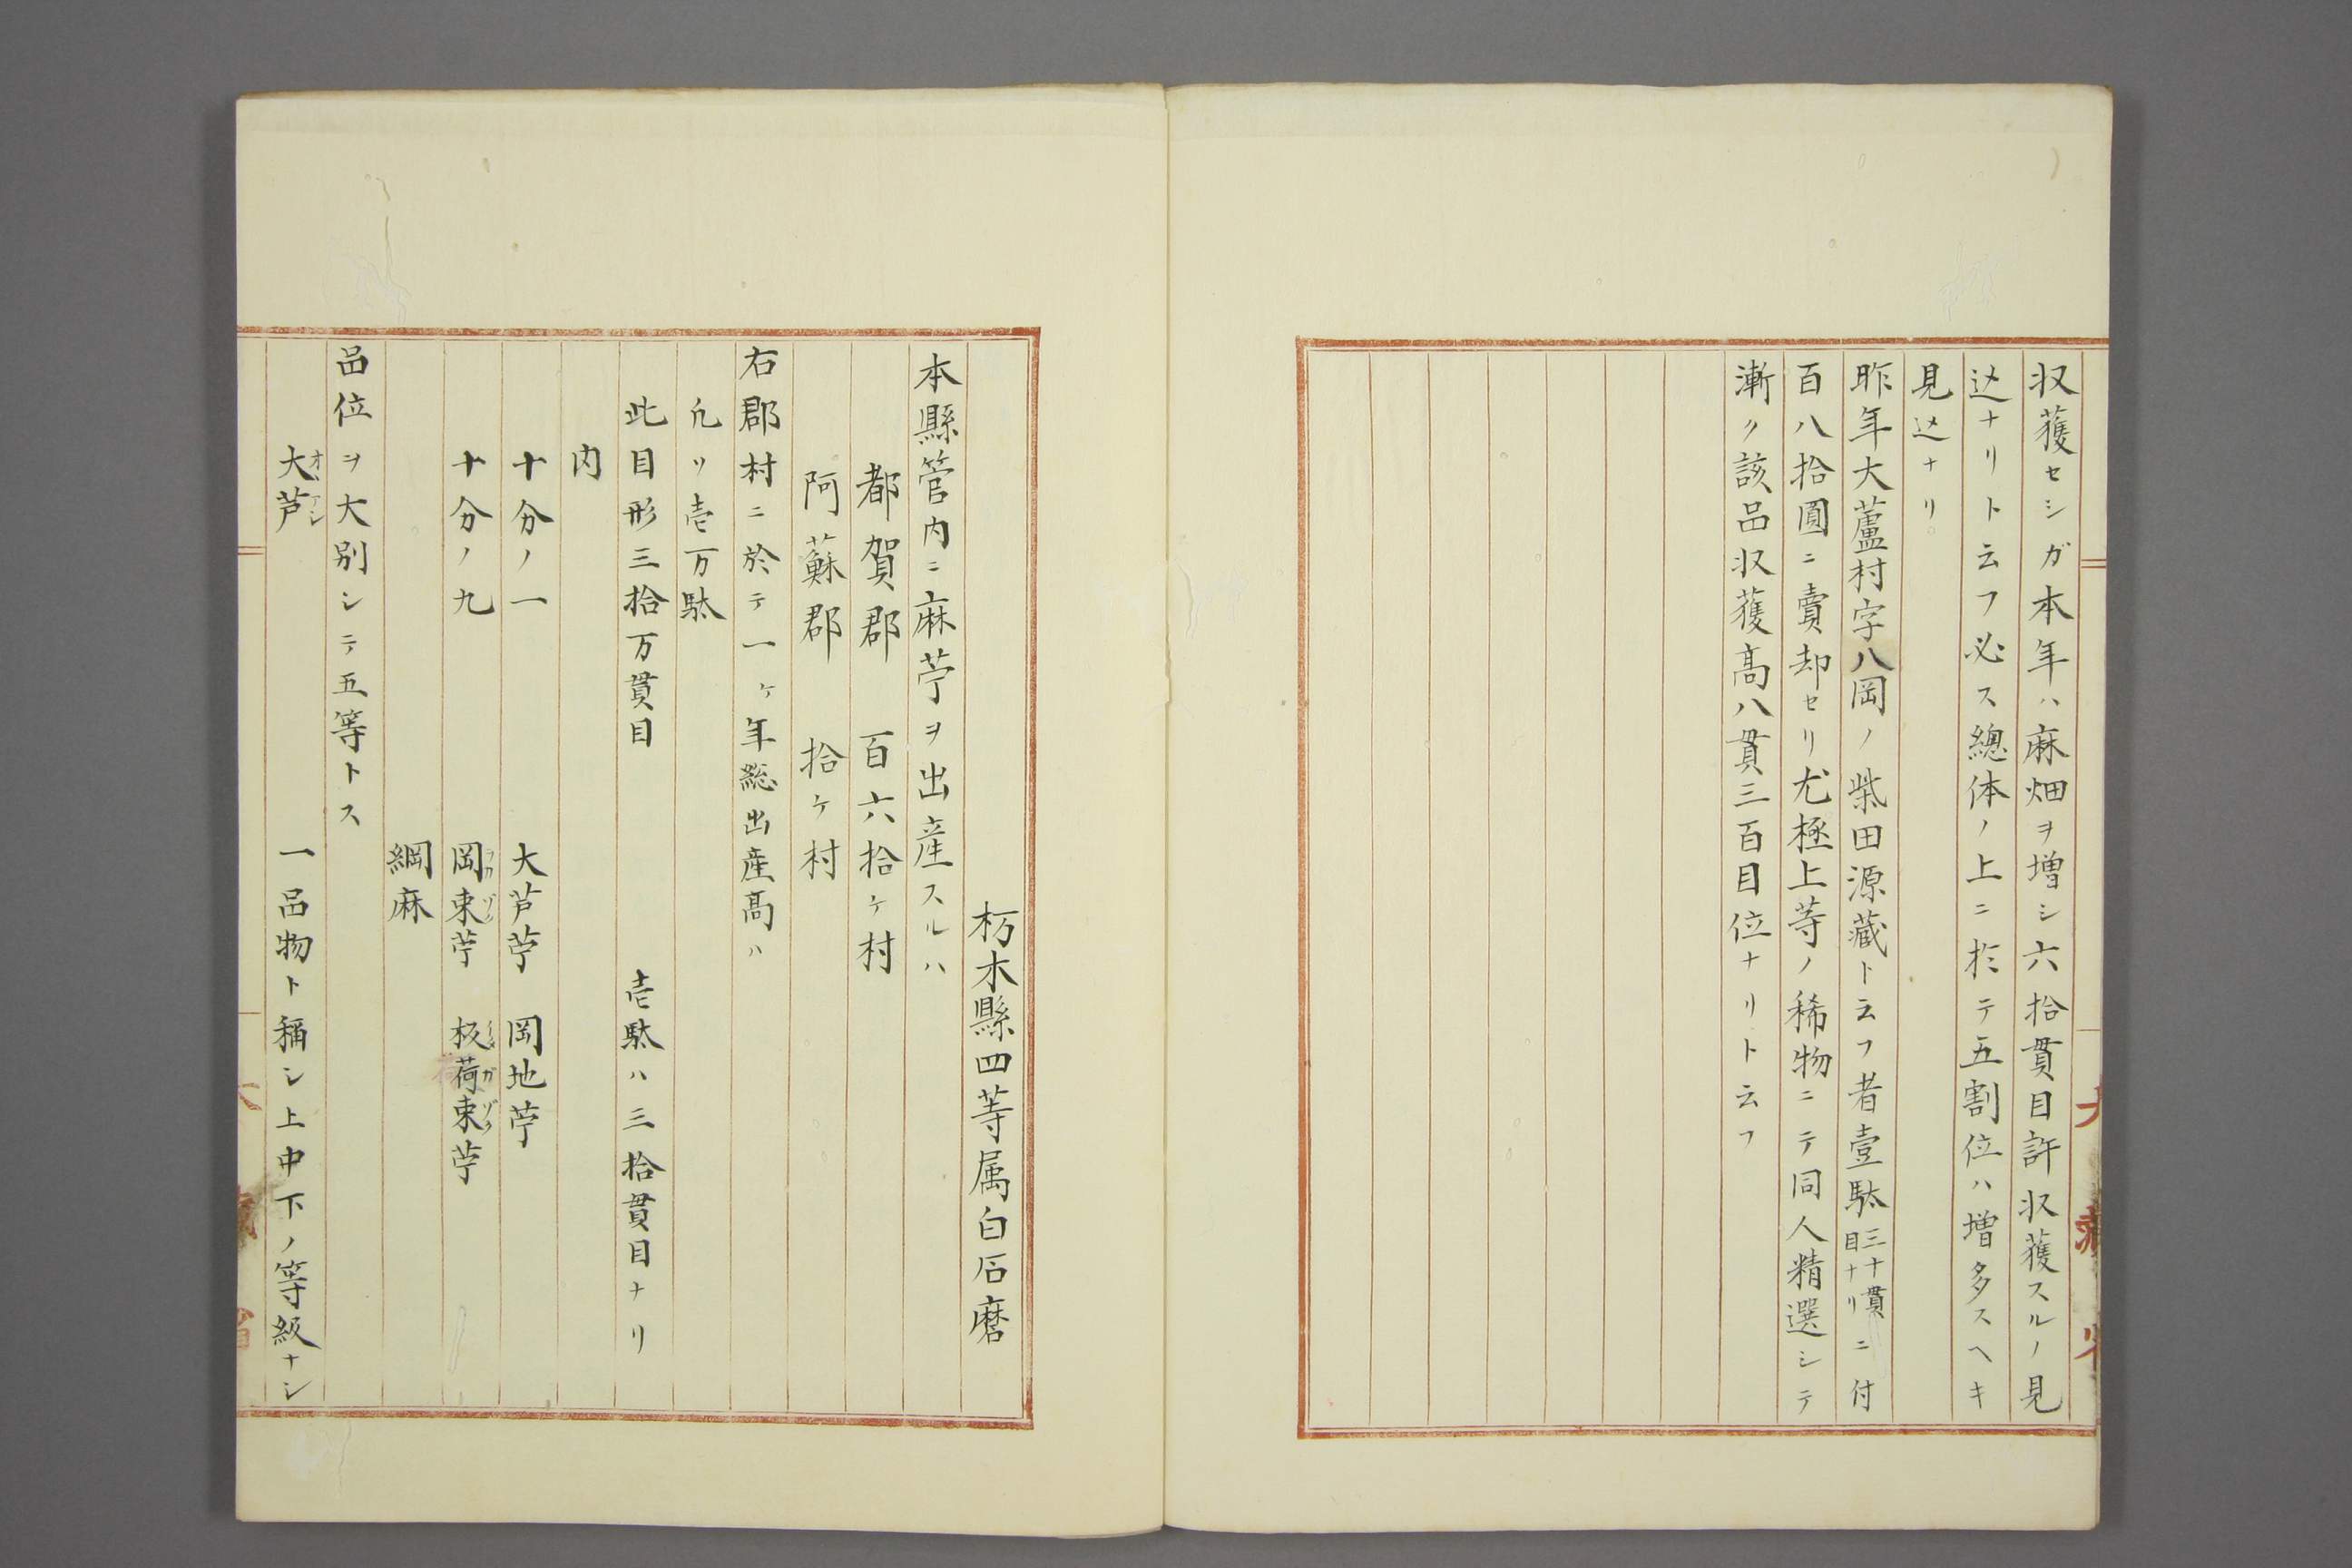 収獲セシガ本年ハ麻畑ヲ増シ六拾貫目許収獲スルノ見
込ナリト云フ必ス總体ノ上ニ於テ五割位ハ増多スヘキ
見込ナリ
昨年大蘆村字八岡ノ柴田源藏ト云フ者壹駄三十貫目ナリニ付
百八拾圓ニ賣却セリ尤極上等ノ稀物ニテ同人精選シテ
漸ク該品収獲高八貫三百目位ナリト云フ
朽木縣四等属白石麿
本縣管内ニ麻苧ヲ出産スルハ
都賀郡 百六拾ケ村
阿蘇郡 拾ケ村
右郡村ニ於テ一ヶ年総出産高ハ
凡リ壱万駄
此目形三拾万貫目 壱駄ハ三拾貫目ナリ
内
十分ノ一 大芦苧 岡地苧
十分ノ九 岡束苧 板荷束苧
綱麻
品位ヲ大別シテ五等トス
大芦 一品物ト稱シ上中下ノ等級ナシ